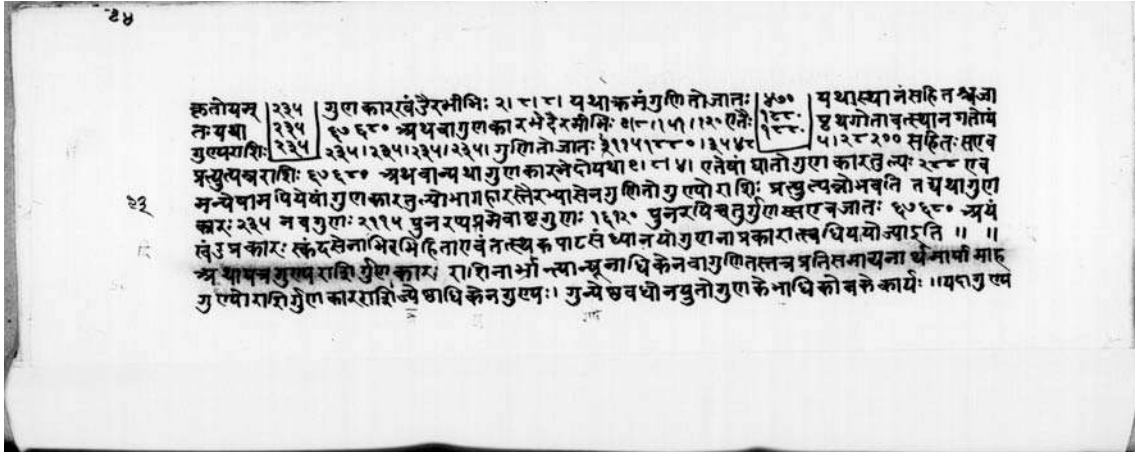 २४
कृतोयम् २३५ गुणकारखंडैरमीभिः २।८।८। यथाक्रमं गुणितो जातः ४७० यथास्थानं सहितश्च जा
तः यथा २३५ ६७६८० अथवा गुणकारभेदैरमीभिः ९।८।१५१।१२० एतैः १८८० पृथगेतावत्स्थानगतोयं
गुण्यराशिः २३५ २३५।२३५।२३५।२३५। गुणितो जातः १८८० सहितः स एव
प्रत्युत्पन्नराशिः ६७६८० अथवान्यथा गुणकारभेदो यथा ९।८।४। एतेषां घातो गुणकारतुल्यः २८८ एव
मन्येषामपि येषां गुणकारतुल्यो भागहारस्तैरभ्यासेन गुणितो गुण्यो राशिः प्रत्युत्पन्नो भवति तद्यथा गुण
कारः २३५ नवगुणः २११५ पुनरप्ययमेवाष्टगुणः १६९२० पुनरपि चतुर्गुणस्स एव जातः ६७६८० अयं
२३
खंडप्रकारः स्कंदसेनाभिरभिहिता एवं तत्स्थकपाटसंध्यानयो गुणनाप्रकारात्स्वधिय योज्या इति ॥ ॥
अथ यत्र गुण्यराशिर्गुणकार राशिनार्भान्त्यान्यूनाधिकेन वा गुणितस्तत्र प्रतिसमायनार्थमार्यामाह
गुण्यो राशिर्गुणकारराशिज्येष्ठाधिकेन गुण्यः। गुन्येष्टवधोनयुतो गुणकेभाधिकोनके कार्यः ॥ यदा गुण्ये